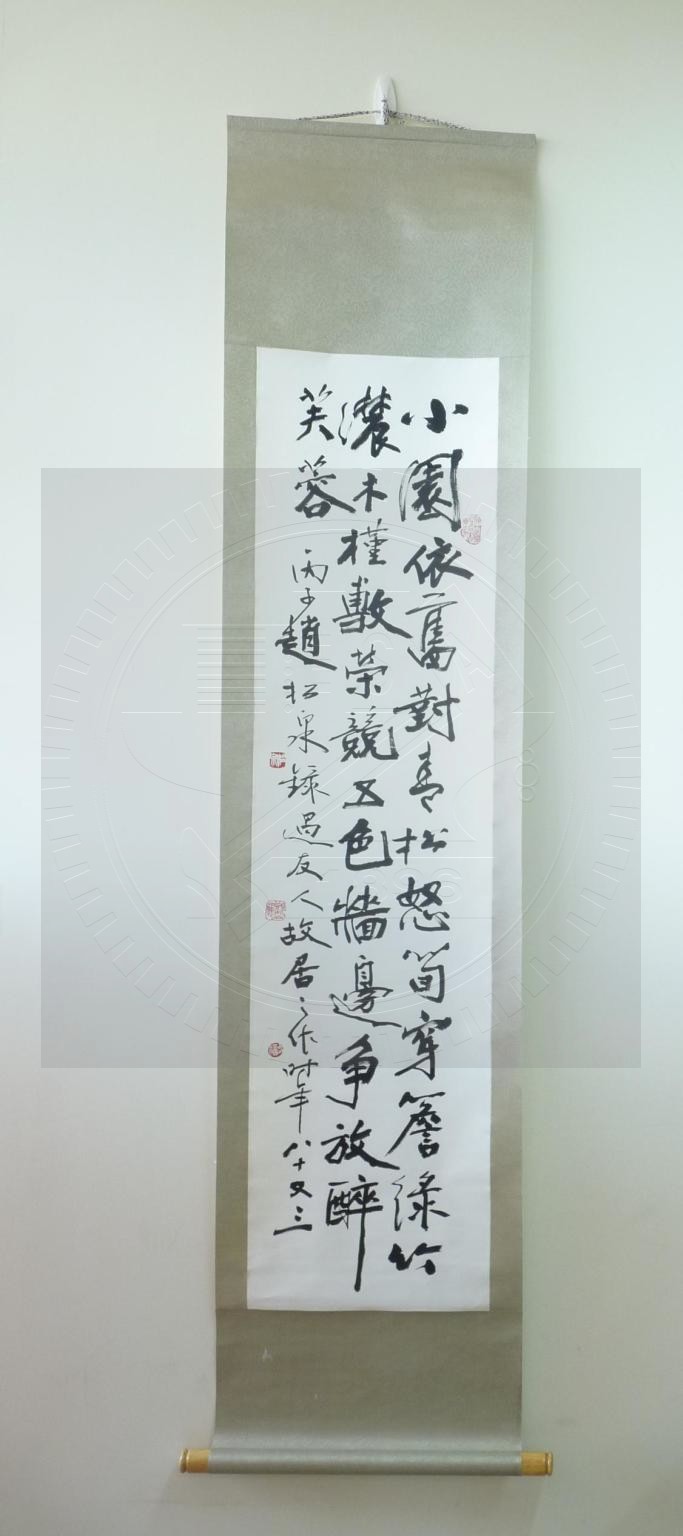 小園依舊對青松怒筍穿簷綠竹
濃木槿敷榮競五色牆邊爭放醉
芙蓉
丙子趙松泉錄過友人故居之作時年八十又三